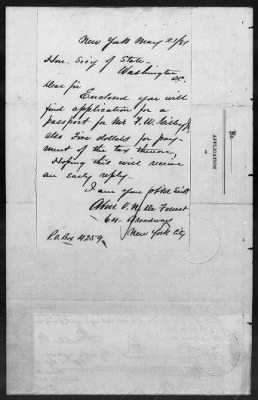 New York May 21/81
Hon. Sec'y of State
Washington
D.C.
Dear Sir
Enclosed you will
find application for a
passport for Mr F. W.
also Five dollars for pay-
ment of the tax thereon,
Hoping this will receive
an early reply-
I am your
V. De Forest
64 Broadway
New York City
P.O. Box 4259
No.
APPLICATION